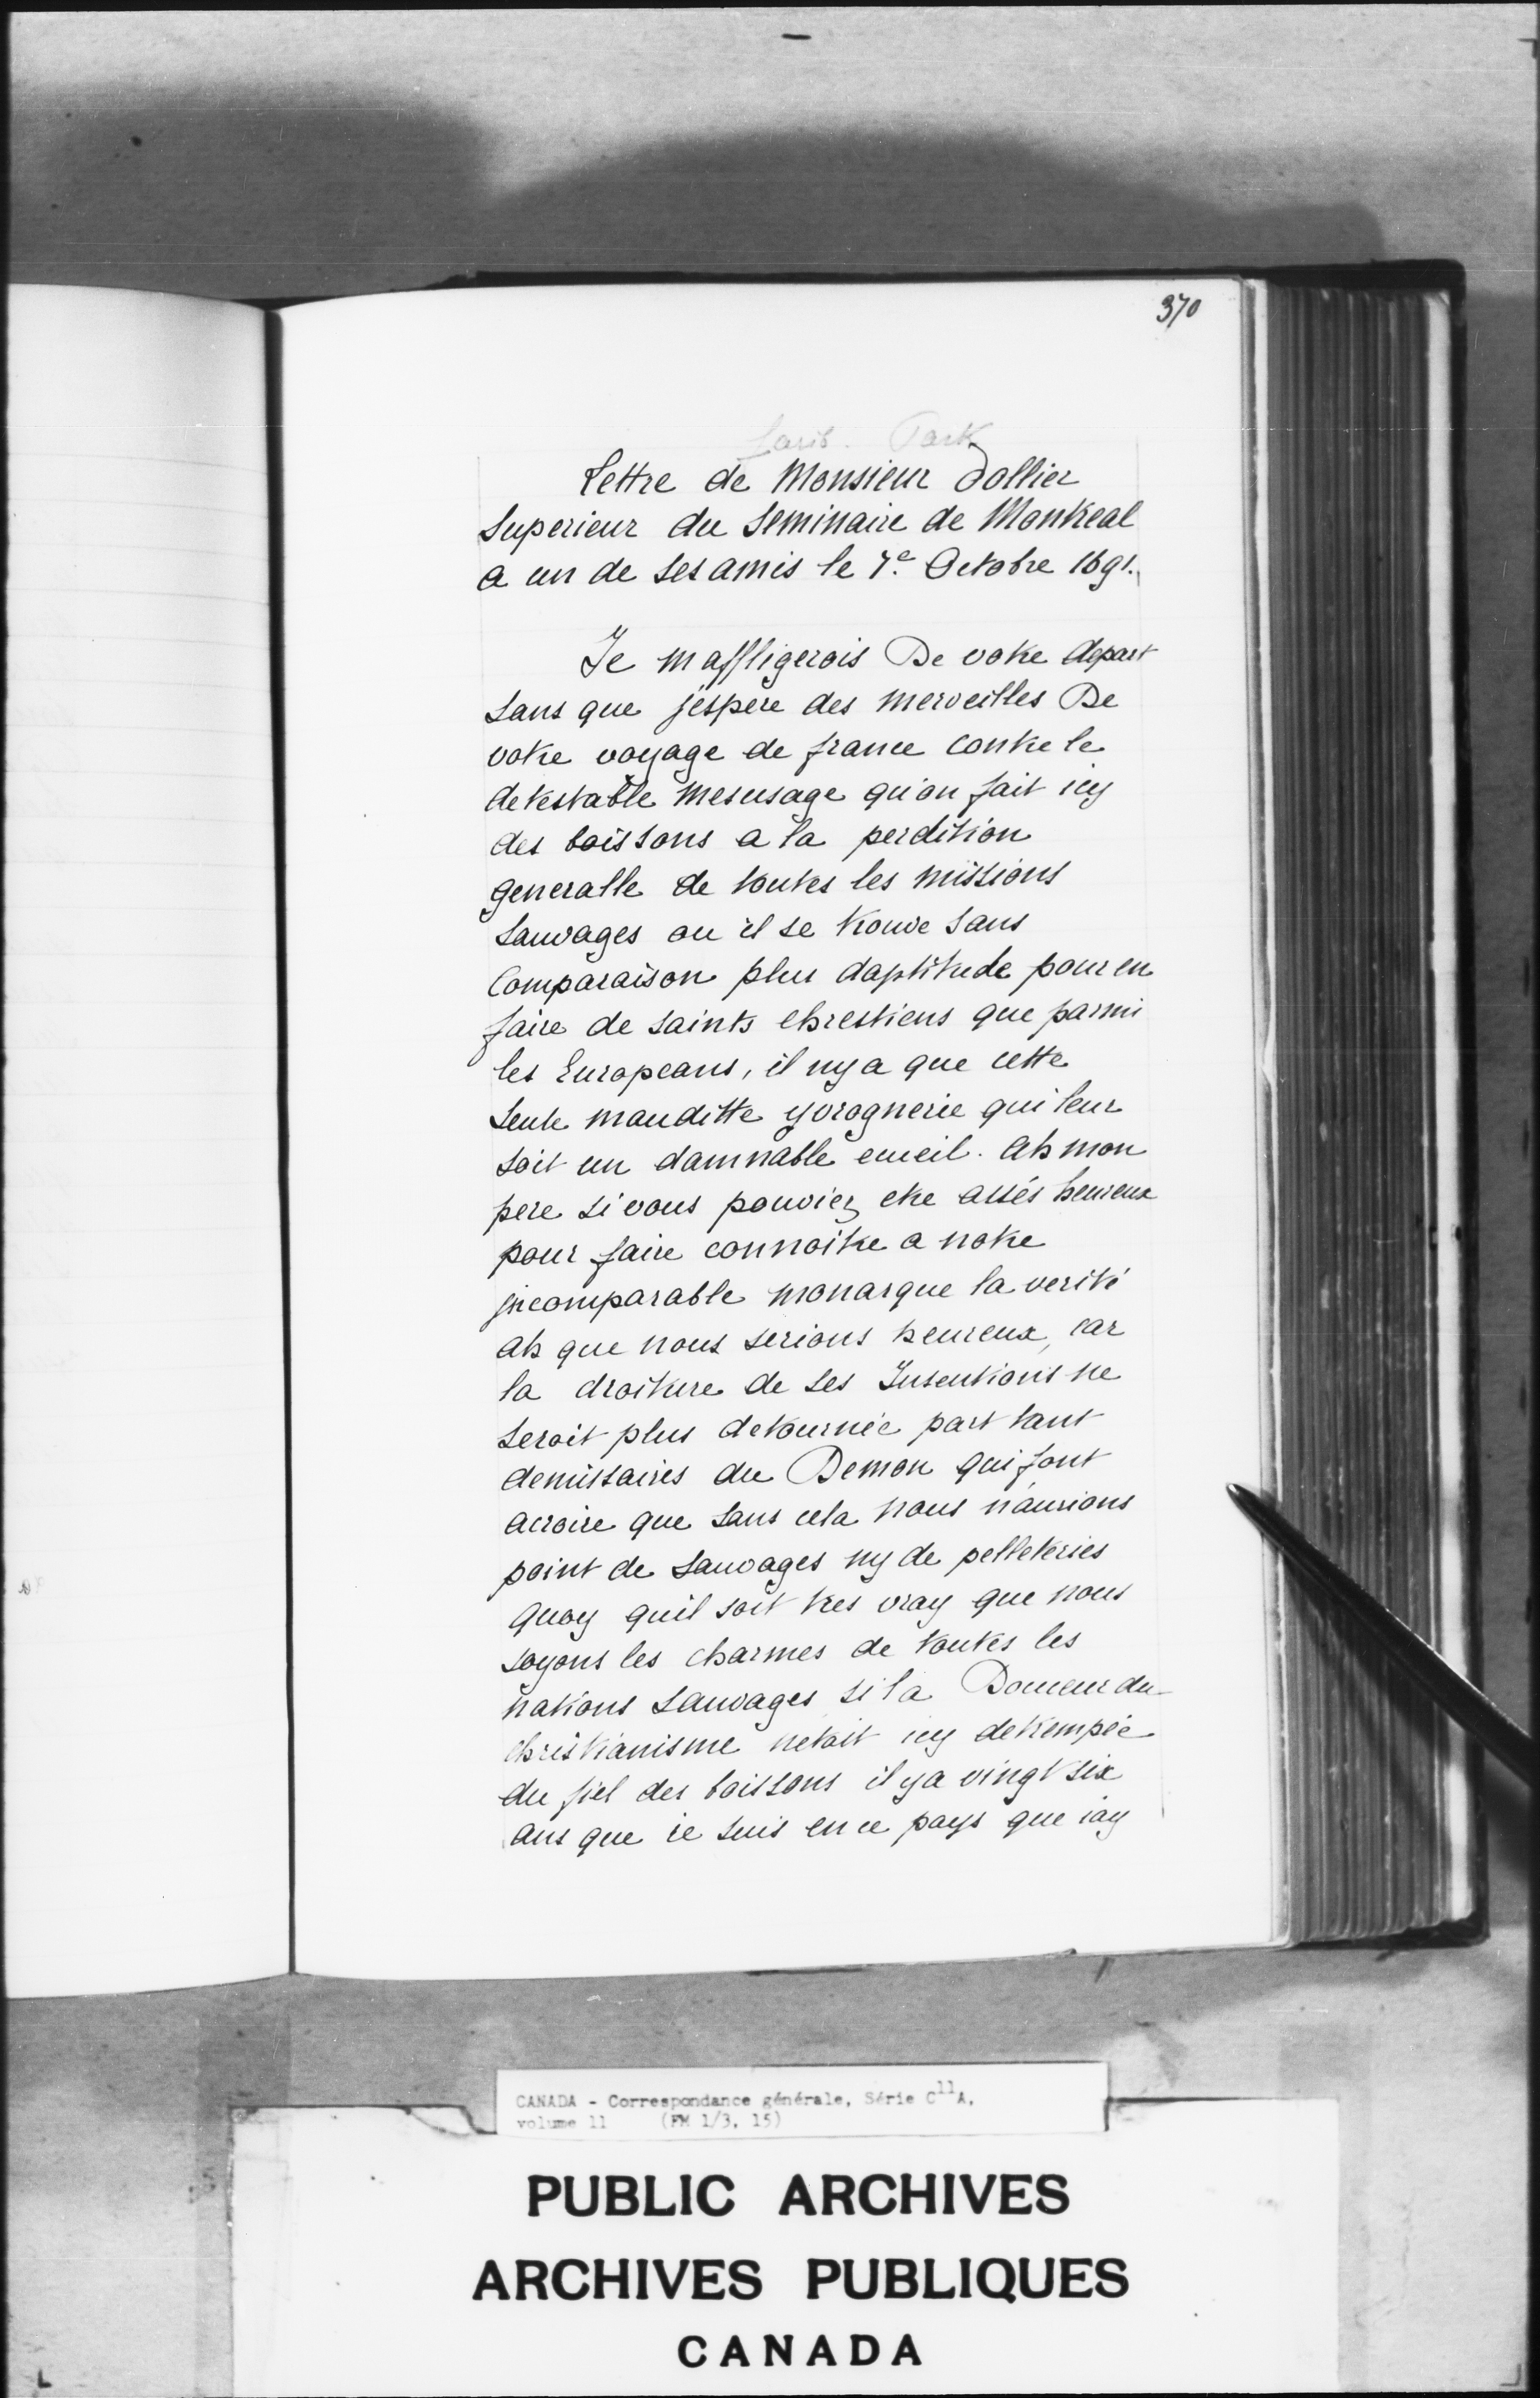 370
Lettre de Monsieur Dollier
Superieur du Seminaire de Montreal
a un de ses amis le 7e. Octobre 1691.
Je m'affligerois De votre depart
sans que j'espere des merveilles De
votre voyage de france contre le
detestable mesusage qu'on fait icy
des boissons a la perdition
generalle de toutes les missions
sauvages ou il se trouve sans
Comparaison plus daptitude pour en
faire de saints chrestiens que parmi
les Europeans, il ny a que cette
seule mauditte yvrognerie qui leur
soit un damnable ecueil. Ah mon
pere si vous pouviez etre assés heureux
pour faire connoitre a notre
jncomparable monarque la verité
ah que nous serions heureux, car
la droiture de ses Intentions ne
seroit plus detournée part tant
demissaires du Demon qui font
acroire que sans cela nous n'aurions
point de sauvages ny de pelleteries
quoy quil soit tres vray que nous
soyons les charmes de toutes les
nations sauvages si la Douceur du
christianisme netoit icy detrempée
du fiel des boissons il y a vingt six
ans que ie suis en ce pays que iay
CANADA - Correspondance générale, Série C11A,
volume 11 (FM 1/3, 15)
PUBLIC ARCHIVES
ARCHIVES PUBLIQUES
CANADA